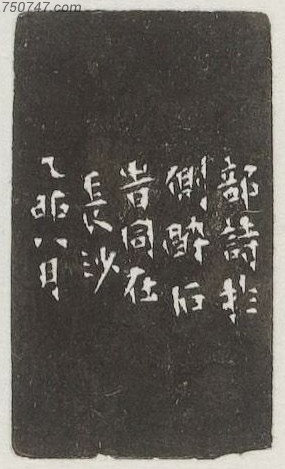 750747.com
部詩於
側醉石
昔同在
長沙
乙卯八月